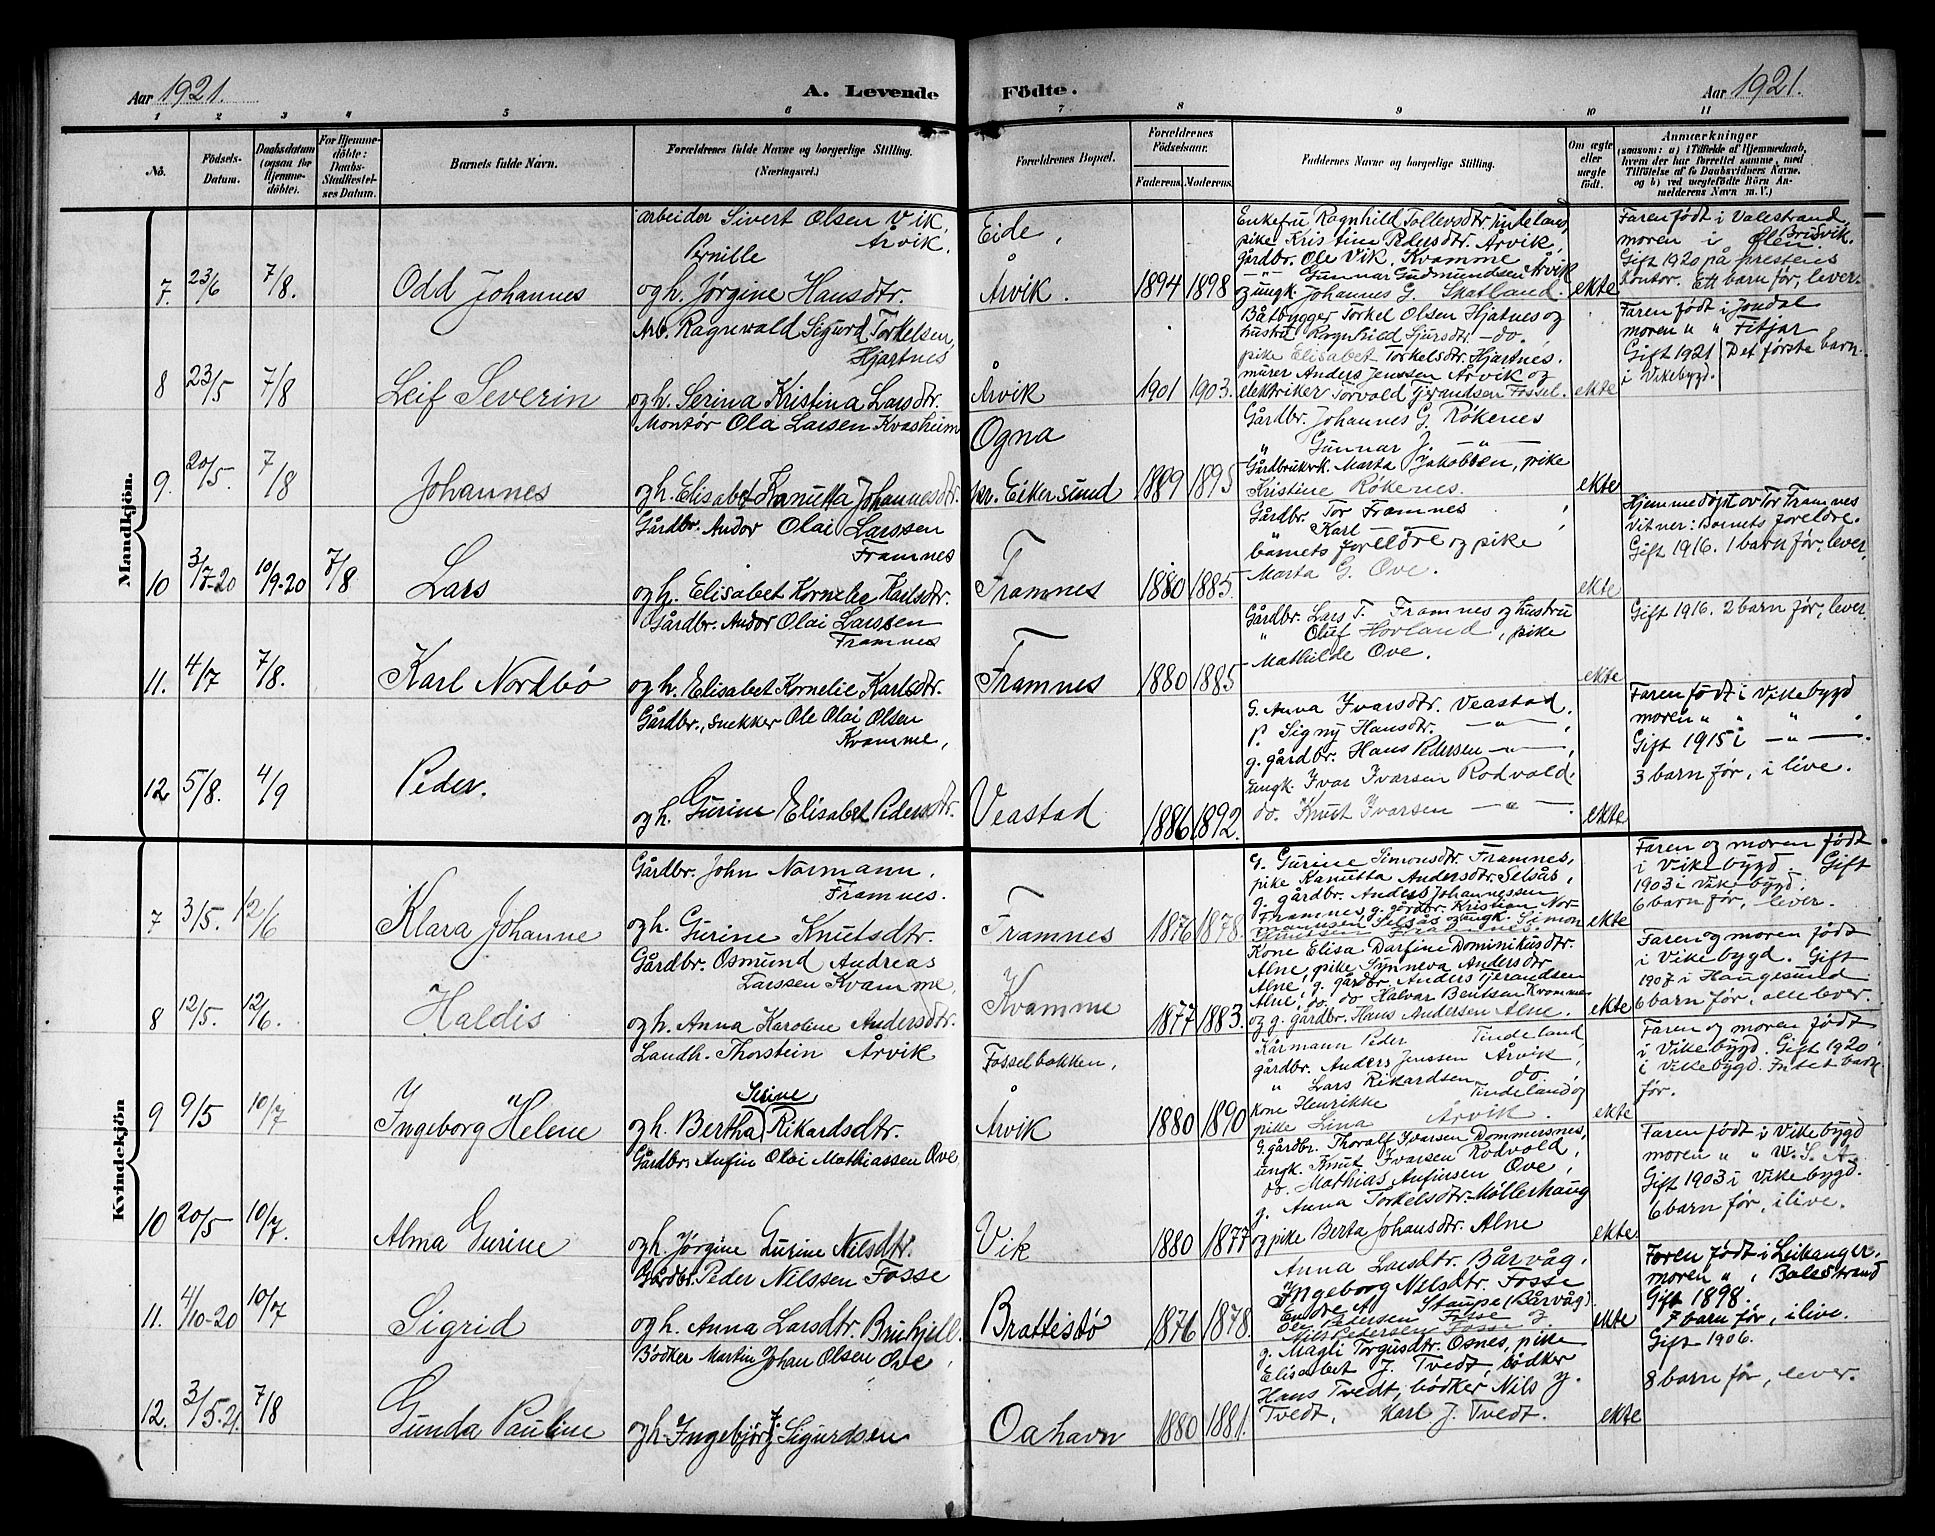 Aar 1921. A. Levende Födte. Aar 1921.
1 2 3 4 5 6 7 8 9 10 11
No. Födsels-Datum. Daabsdatum (ogsaa for Hjemmedöbte). For Hjemmedöbte: Daabs-Stadfæstelses Datum. Barnets fulde Navn. Forældrenes fulde Navne og borgerlige Stilling. (Næringsvei.) Forældrenes Bopæl. Forældrenes Födselsaar. Faderens. Moderens. Faddernes Navne og borgerlige Stilling. Om ægte eller uægte födt. Anmærkninger
(saasom: a) i Tilfælde af Hjemmedaab, hvem der har forrettet samme, med Tilföielse af to Daabsvidners Navne, og b) ved uægtefödte Börn Anmelderens Navn m. V.)
Mandkjön.
7. 23/6 7/8. Odd Johannes
arbeider Sivert Olsen Vik,
Årvik.
Pernille
og h. Jørgine Hansdtr.
Eide,
Årvik. 1894 1898
Enkefru Ragnhild Tollevsdtr. Tindeland,
pike Kristine Pedersdtr. Årvik,
gårdbr. Ole Vik, Kvamme
-"- Gunnar Gudmundsen Årvik
og ungk. Johannes G. Skatland. ekte
Faren født i Valestrand,
moren i Ølen. Brusvik.
Gift 1920 på prestens
kontor. Ett barn før, lever.
8 23/5 7/8 Leif Severin
Arb. Ragnvald Sigurd Torkelsen,
Hjartnes
og h. Serina Kristina Larsdtr.
Årvik 1901 1903.
Båtbygger Torkel Olsen Hjatnes og
hustru Ragnhild Sjursdtr. -do.
pike Elisabet Torkelsdtr. Hjartnes.
murer Anders Jenssen Årvik og
elektriker Torvald Tjerandsen Fossel. ekte
Faren født i Jondal
moren " " Fitjar
Gift 1921 Det første barn
i Vikebygd.
9. 20/5. 7/8 Johannes
Montør Ola Larsen Kvasheim
og h. Elisabet Kanutta Johannesdtr.
Ogna
pr. Eikersund 1889 1895
Gårdbr. Johannes G. Røkenes
" Gunnar J. -"-
Gårdbrukerk. Marta Jakobsen, pike
Kristine Røkenes. ekte
10 3/7-20 10/9-20 7/8 Lars
Gårdbr. Andor Olai Larssen
Framnes
og h. Elisabet Kornelie Karlsdtr.
Framnes 1880 1885.
Gårdbr. Tor Framnes
" Karl
barnets foreldre og pike
Marta G. Ove. ekte
Hjemmedøpt av Tor Framnes
Vitner: Barnets foreldre.
Gift 1916. 1 barn før, lever.
11. 4/7 7/8. Karl Nordbø
Gårdbr. Andor Olai Larssen
Framnes
og h. Elisabet Kornelie Karlsdtr.
Framnes 1880 1885
Gårdbr. Lars T. Framnes og hustru
" Oluf Hovland, pike
Mathilde Ove. ekte
Gift 1916. 2 barn før, lever.
12 5/8. 4/9 Peder.
Gårdbr., snekker Ole Olai Olsen
Kvamme,
og h. Gurine Elisabet Pedersdtr.
Veastad 1886 1892.
G. Anna Ivarsdtr. Veastad,
p. Signy Hansdtr. -"-,
g. gårdbr. Hans Pedersen -"-,
ungk. Ivar Ivarsen Rodvald,
do. Knut Ivarsen -"-. ekte
Faren født i Vikebygd
moren " " " .
Gift 1915 i -"-.
3 barn før, i live.
Kvindekjön
7 3/5. 12/6 Klara Johanne
Gårdbr. John Normann,
Framnes.
og h. Gurine Knutsdtr.
Framnes 1876 1878.
G. Gurine Simonsdtr. Framnes,
pike Kanutta Andersdtr. Selsås,
g. gårdbr. Anders Johannessen
Framnes, g. gårdbr. Kristian Nor-
mannsen Selsås og ungk. Simon
Knutsen Framnes. ekte
Faren og moren født
i Vikebygd. Gift
1903 i Vikebygd.
6 barn før, lever.
8 12/5. 12/6. Haldis
Gårdbr. Osmund Andreas
Larssen Kvamme,
og h. Anna Karoline Andersdtr.
Kvamme 1877 1883.
Kone Elisa Darfine Dominikusdtr.
Alne, pike Synneva Andersdtr
Alne, g. gårdbr. Anders Tjerandsen
Alne, do. do Halvar Bentsen Kvamme
og g. gårdbr. Hans Andersen Alne. ekte
Faren og moren født
i Vikebygd. Gift
1907 i Haugesund
6 barn før, alle lever.
9 9/5 10/7 Ingeborg Helene
Landh. Thorstein Årvik
Serine,
og h. Bertha Rikardsdtr.
Fosselbakken,
Årvik 1880 1890
Kårmann Peder Tindeland,
gårdbr. Anders Jenssen Årvik,
" Lars Rikardsen do,
kone Henrikke Tindeland og
pike Lina Årvik. ekte
Faren og moren født
i Vikebygd. Gift 1920
i Vikebygd. Intet barn
før.
10 20/5 10/7. Alma Gurine
Gårdbr. Anfin Olai Mathiassen Ove,
og h. Jørgine Gurine Nilsdtr.
Vik 1880 1877
G. gårdbr. Thoralf Ivarsen Dommersnes,
ungk. Knut Ivarsen Rodvold,
do. Mathias Anfinsen Ove,
g. Anna Torkelsdtr. Møllerhaug
og pike Berta Johansdtr. Alne ekte
Faren født i Vikebygd
moren " " W. S. A.
Gift 1903 i Vikebygd.
6 barn før, i live.
11. 4/10-20 10/7 Sigrid
Gårdbr. Peder Nilssen Fosse
og h. Anna Larsdtr. Bruhjell.
Brattestø 1876 1878.
Anna Larsdtr. Bårvåg,
Ingeborg Nilsdtr. Fosse
Endre A Staupe (Bårvåg)
Ole Petersen Fosse og
Nils Petersen Fosse ekte
Faren født i Leikanger,
moren " , Balestrand
Gift 1898.
7 barn før, i live.
12. 3/5.21. 7/8 Gunda Pauline
Bødker Martin Johan Olsen Ove,
og h. Ingebjørg J. Sigurdsen
Oahavn 1880 1881.
g. Magli Torgusdtr. Osnes, pike
Elisabet J. Tvedt, bødker
Hans Tvedt, bødker Nils J.
Tvedt, Karl J. Tvedt. ekte
Gift 1906.
8 barn før, lever.